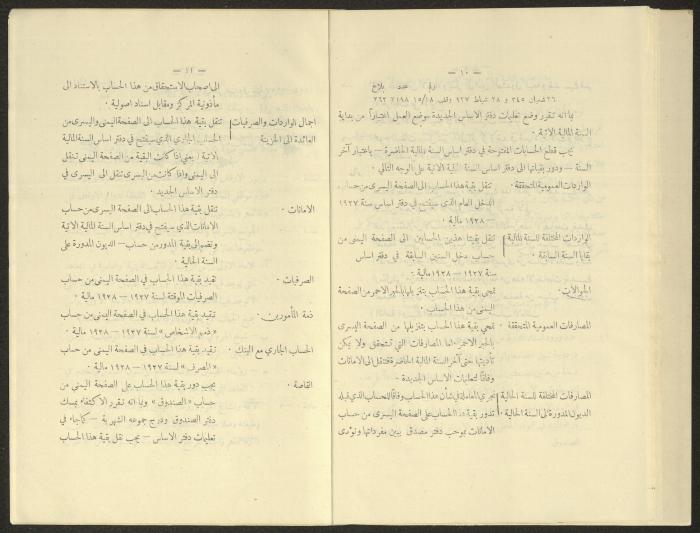 — ١٠ —
بلاغ عدد رقم
٢٦ شعبان ٣٤٥ و ٢٨ شباط ٩٢٧ وقلب ١٥/١٨ ٢١٩٨ ٢٦٢
بما انه تقرر وضع تعليمات دفتر الاساس الجديدة موضع العمل اعتباراً من بداية
السنة المالية الآتية ٠
يجب قطع الحسابات المفتوحة في دفتر اساس السنة المالية الحاضرة — باعتبار آخر
السنة — ودور بقياتها الى دفتر اساس السنة المالية الآتية على الوجه التالي ٠
الواردات العمومية المتحققة ٠ تنقل بقية هذا الحساب الى الصفحة اليسرى من حساب
الدخل العام الذي سيفتح في دفتر اساس سنة ١٩٢٧
— ١٩٢٨ مالية ٠
الواردات المختلفة للسنة المالية تنقل بقيتا هذين الحسابين الى الصفحة اليمنى من
بقايا السنة السابقة ٠ حساب دخل السنين السابقة في دفتر اساس
سنة ١٩٢٧ — ١٩٢٨ مالية ٠
الحوالات ٠ تمحى بقية هذا الحساب بتنزيلها بالحبر الاحمر من الصفحة
اليمنى من هذا الحساب ٠
المصارفات العمومية المتحققة ٠ تمحي بقية هذا الحساب بتنزيلها من الصفحة اليسرى
بالحبر الاحمر اما المصارفات التي تتحقق ولا يمكن
تأديتها حتى آخر السنة المالية الحاضرة فتنتقل الى الامانات
وفاقاً لتعليمات الاساس الجديدة ٠
المصارفات المختلفة للسنة الحالية تجري المعاملة في شأن هذا الحساب وفاقاً للحساب الذي قبله
الديون المدورة الى السنة الحالية ٠ تدور بقية هذا الحساب على الصفحة اليسرى من حساب
الامانات بموجب دفتر مصدق يبين مفرداتها وتؤدى
— ١٢ —
الى اصحاب الاستحقاق من هذا الحساب بالاستناد الى
مأذونية المركز ومقابل اسناد اصولية ٠
اجمال الواردات والصرفيات تنقل بقية هذا الحساب الى الصفحة اليمنى واليسرى من
العائدة الى الخزينة الحساب الجاري الذي سيفتح في دفتر اساس السنة المالية
الآتية ( يعني اذا كانت البقية من الصفحة اليمنى تنقل
الى اليمنى واذا كانت من اليسرى تنقل الى اليسرى في
دفتر الاساس الجديد ٠
الامانات ٠ تنقل بقية هذا الحساب الى الصفحة اليسرى من حساب
الامانات الذي سيفتح في دفتر اساس السنة المالية الآتية
وتضم الى بقية المدور من حساب — الديون المدورة على
السنة الحالية ٠
الصرفيات ٠ تقيد بقية هذا الحساب في الصفحة اليمنى من حساب
الصرفيات الموقتة لسنة ١٩٢٧ — ١٩٢٨ مالية ٠
ذمة المأمورين ٠ تقيد بقية هذا الحساب في الصفحة اليمنى من حساب
« ذمم الاشخاص » لسنة ١٩٢٧ — ١٩٢٨ مالية ٠
الحساب الجاري مع البنك ٠ تقيد بقية هذا الحساب في الصفحة اليمنى من حساب
« المصرف » لسنة ١٩٢٧ — ١٩٢٨ مالية ٠
القاصة ٠ يجب دور بقية هذا الحساب على الصفحة اليمنى من
حساب « الصندوق » وبما انه تقرر الاكتفاء بمسك
دفتر الصندوق ودرج مجموعه الشهرية — كما جاء في
تعليمات دفتر الاساس — يجب نقل بقية هذا الحساب